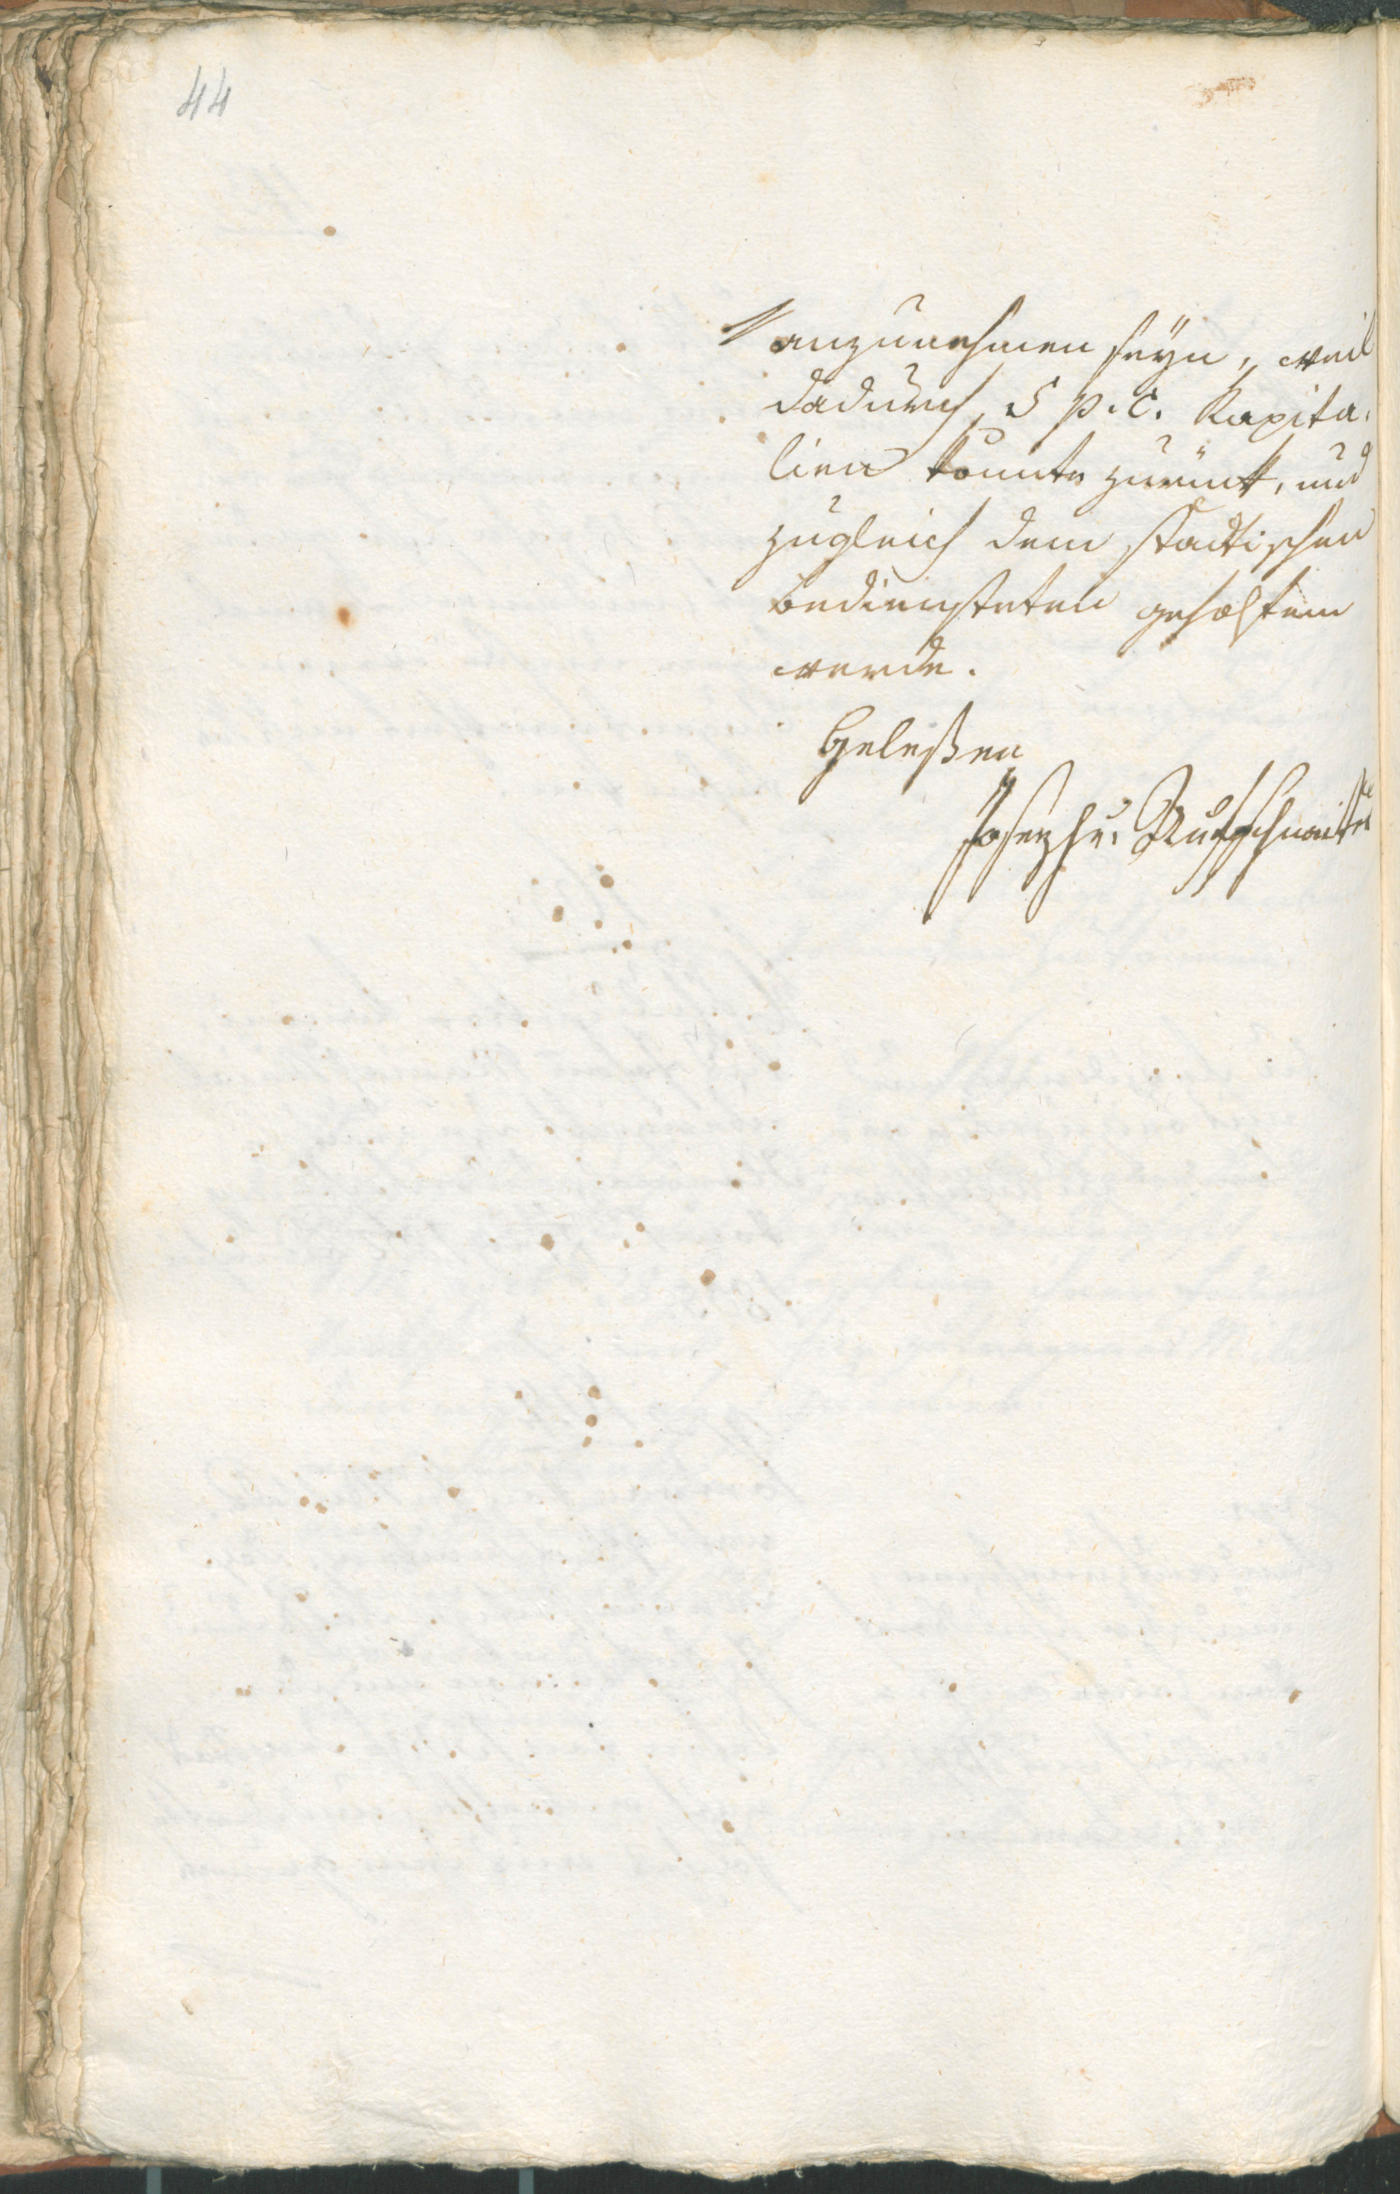 44
anzunehmen seyn, weil
dadurch 5 p. C. Kapita-
lien könnte zurück, und
zugleich dem städtischen
Bediensteten geholfen
werde.
Geleßen
Joseph v. Aufschnaiter